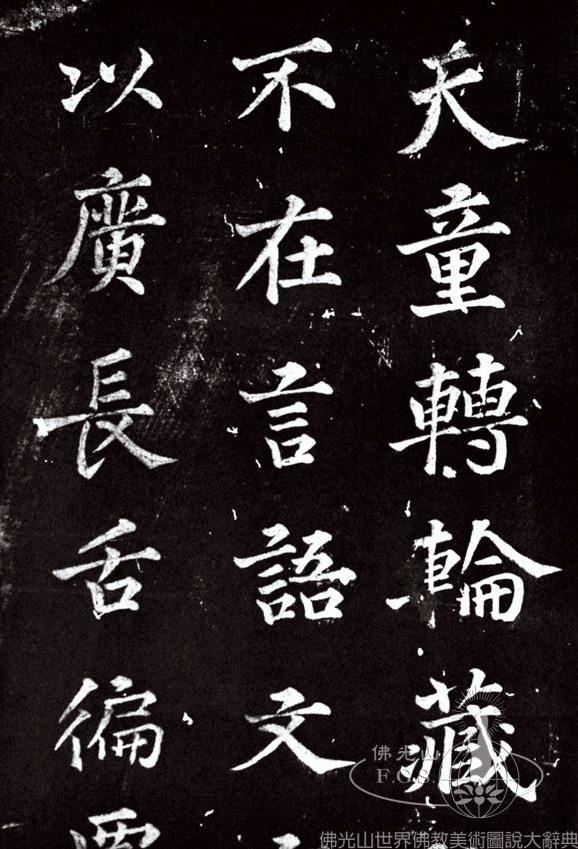 天童轉輪藏
不在言語文
以廣長舌徧
佛光山
F.G.S.
佛光山世界佛教美術圖說大辭典